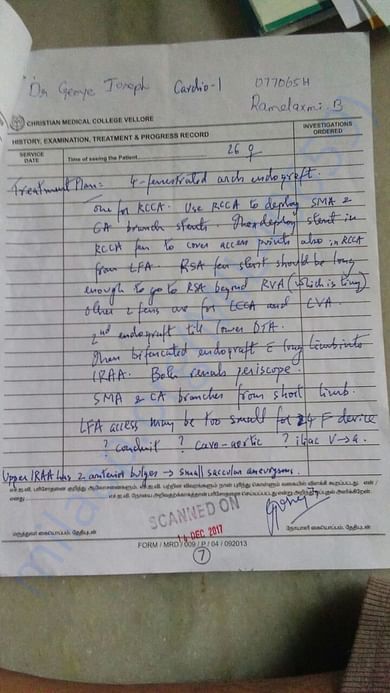 Dr George Joseph Cardio-1 077065H
Ramelaxmi. B
CHRISTIAN MEDICAL COLLEGE VELLORE
HISTORY, EXAMINATION, TREATMENT & PROGRESS RECORD
INVESTIGATIONS ORDERED
SERVICE DATE
Time of seeing the Patient
26 ♀
Treatment Plan:- 4-fenestrated arch endograft.
one for RCCA. Use RCCA to deploy SMA &
CA branch stents. Then deploy stent in
RCCA fen to cover access points also in RCCA
from LFA. RSA fen stent should be long
enough to go to RSA beyond RVA (which is tiny)
other 2 fens are for LCCA and LVA.
2nd endograft till lower DTA.
Then bifurcated endograft c̄ long limb into
IRAA. Both renals periscope.
SMA & CA branches from short limb.
LFA access may be too small for 24 F device
? conduit ? cavo-aortic ? iliac V→a.
Upper IRAA has 2 anterior bulges → small saccular aneurysms.
SCANNED ON
14 DEC 2017
மருத்துவர் கையொப்பம், தேதியுடன்
நோயாளி கையொப்பம், தேதியுடன்
FORM / MRD / 009 / P / 04 / 092013
7